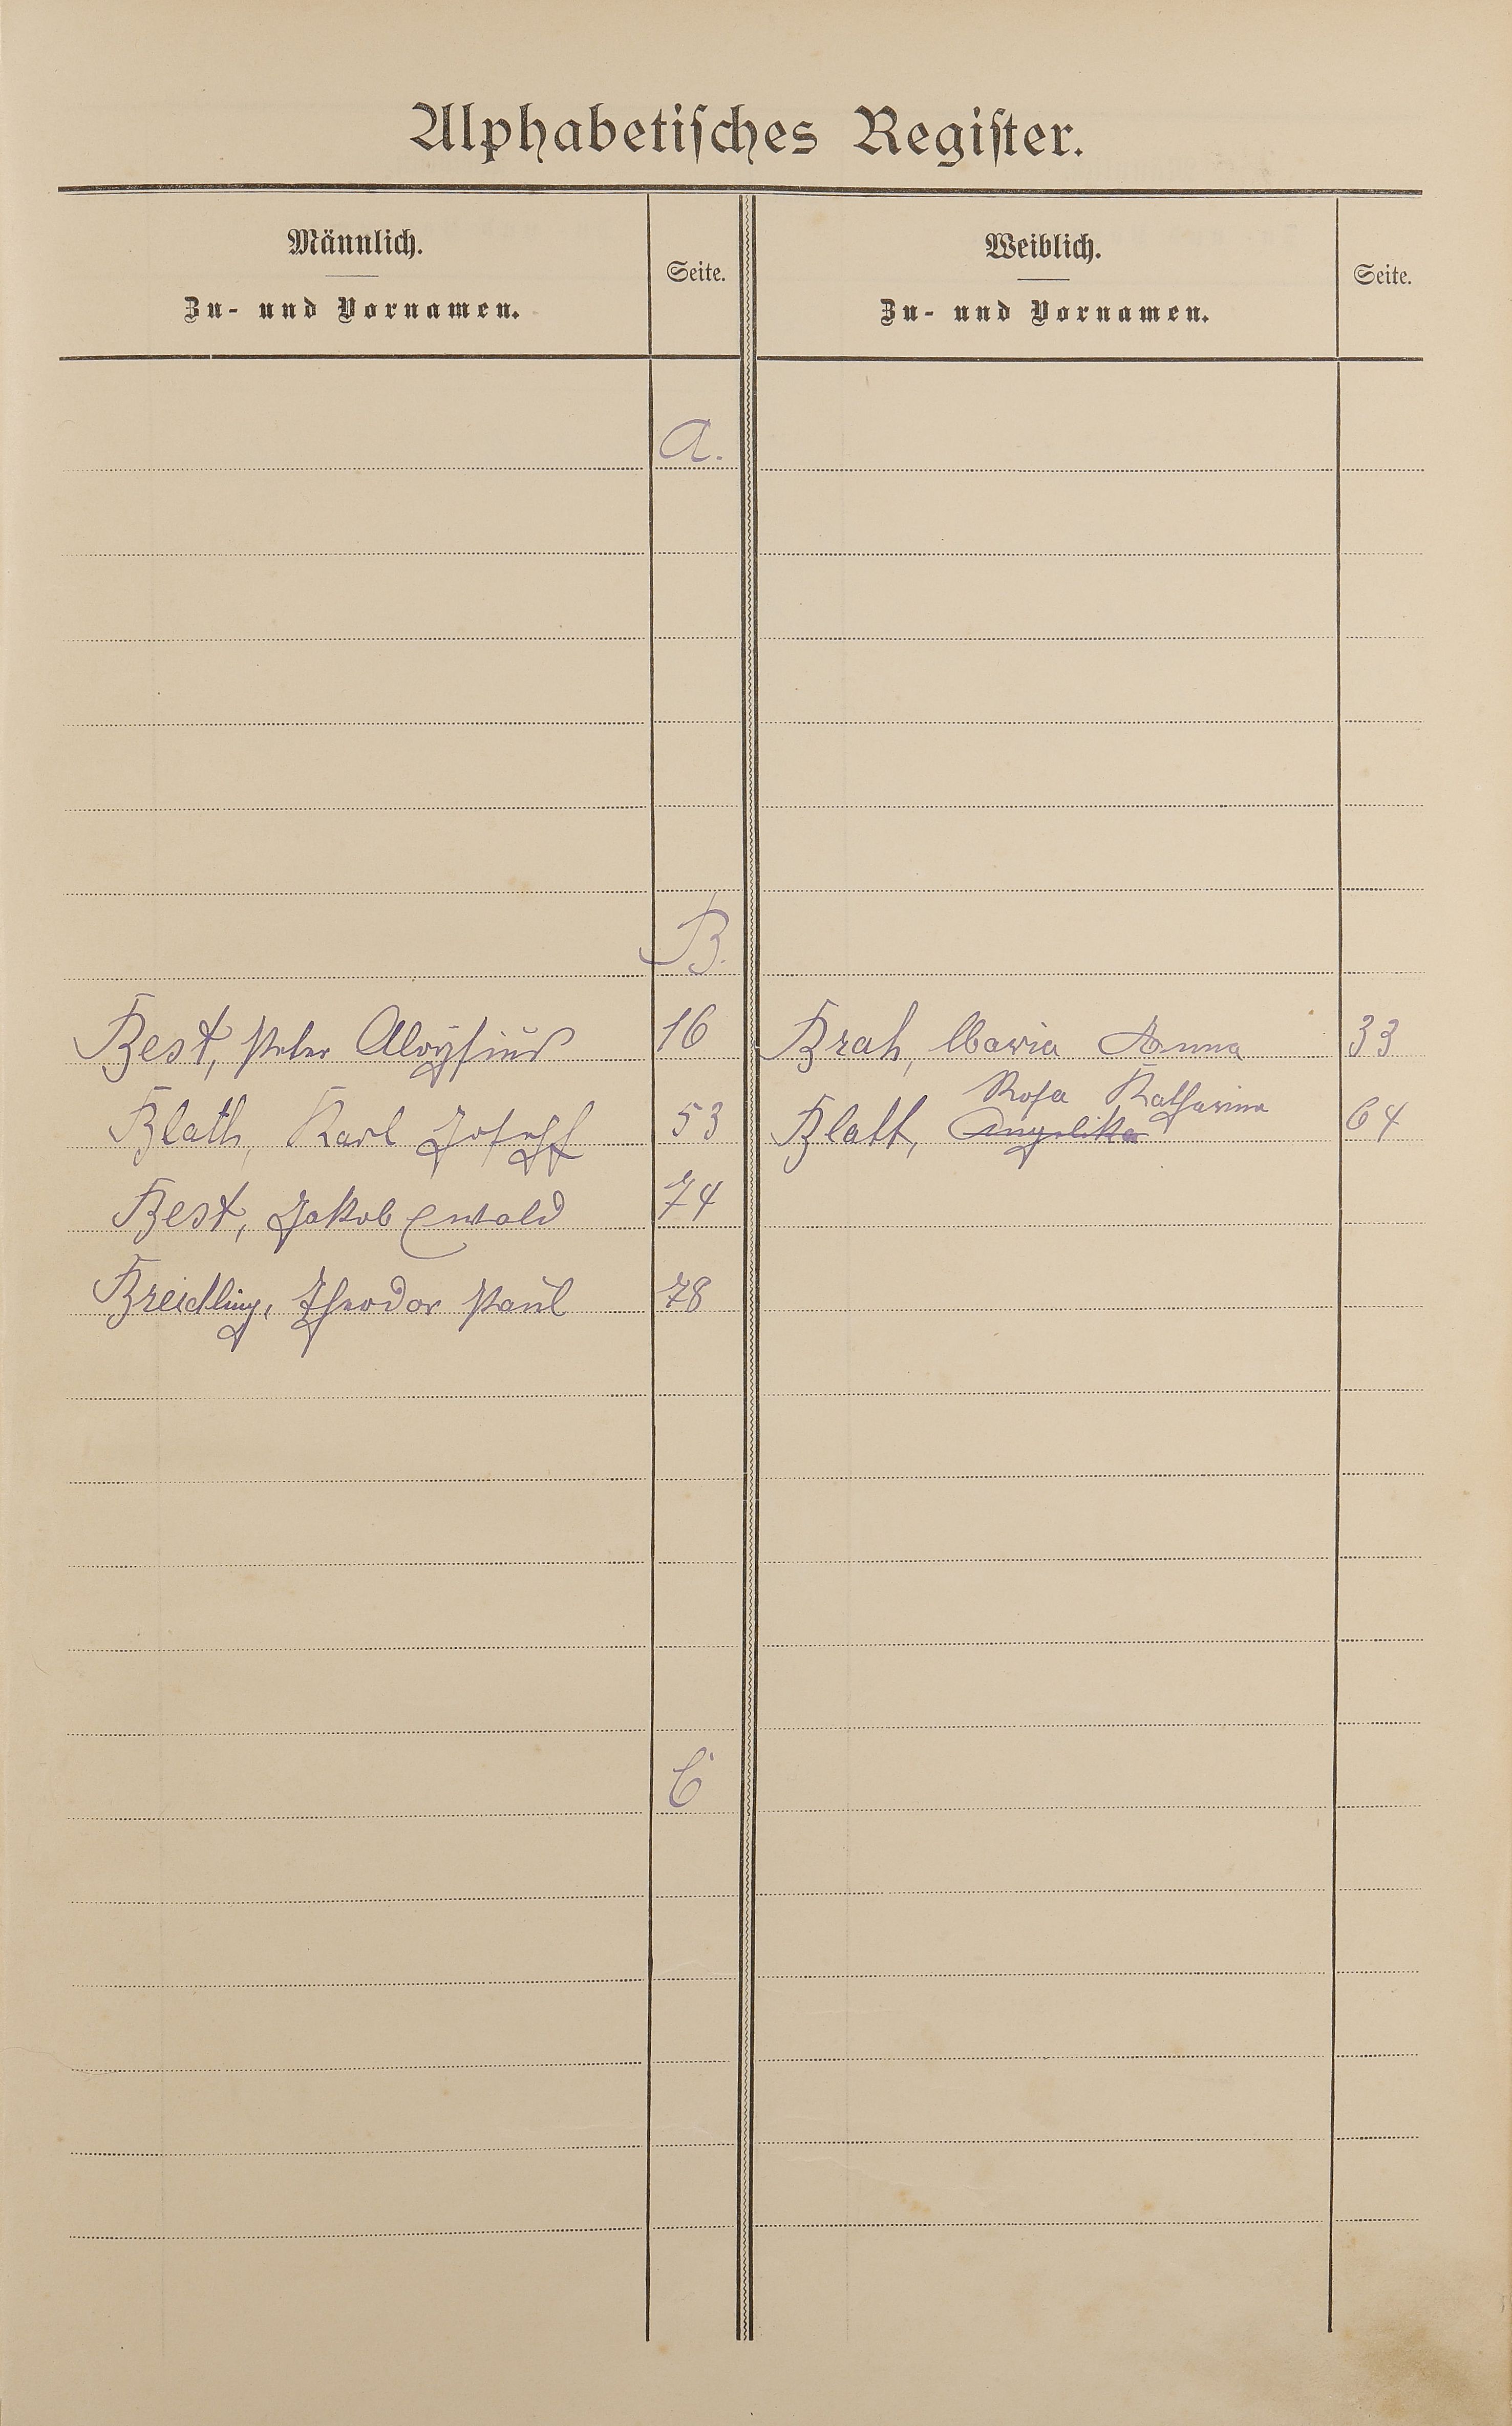 Alphabetisches Register.
Männlich. Weiblich.
Zu- und Vornamen. Seite. Zu- und Vornamen. Seite.
A.
B.
Best, Peter Aloysius 16 Brah, Maria Anna 33
Rosa Katharina
Blath, Karl Joseph 53 Blatt, Angelika 64
Best, Jakob Ewald 74
Breidling, Theodor Paul 78
C